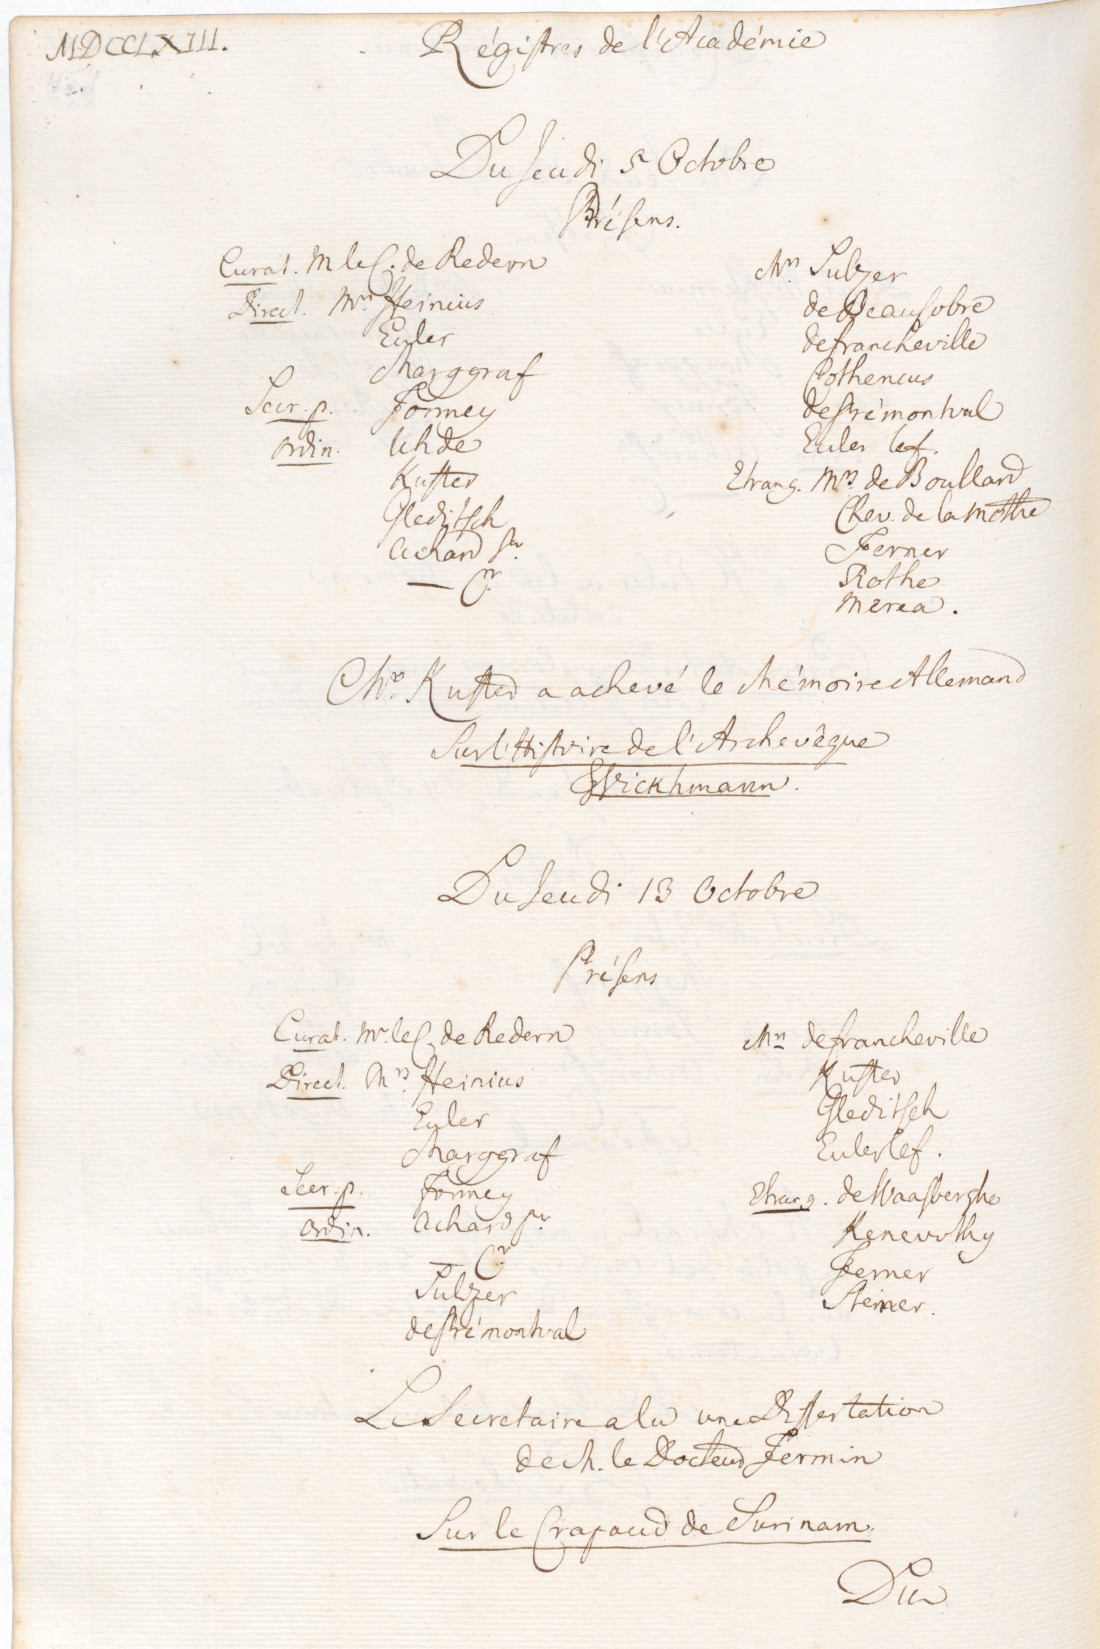 MDCCLXIII.
Régistres de l'Académie
Du Jeudi 5 Octobre
Présens.
Curat. M le C. de Redern
Direct. Mrs Heinius
Euler
Marggraf
Secr. p. Formey
Ordin. Uhde
Kuster
Gleditsch
Achard Sr.
— Cr.
Mrs Sulzer
de Beausobre
de Francheville
Cothenius
de Prémontval
Euler le f.
Etrang. Mrs de Boullard
Chev. de la Mothe
Ferner
Rothe
Merea.
Mr. Kuster a achevé le Mémoire Allemand
Sur l'Histoire de l'Archevêque
Wickhmann.
Du Jeudi 13 Octobre
Présens
Curat. Mr. le C. de Redern
Direct. Mrs Heinius
Euler
Marggraf
Secr. p. Formey
Ordin. Achard Sr.
— Cr.
Sulzer
de Prémontval
Mrs de Francheville
Kuster
Gleditsch
Euler le f.
Etrang. de Waasberghe
Kenevothy
Ferner
Steiner.
Le Secretaire a lu une Dissertation
de M. le Docteur Fermin
Sur le Crapaud de Surinam.
Du